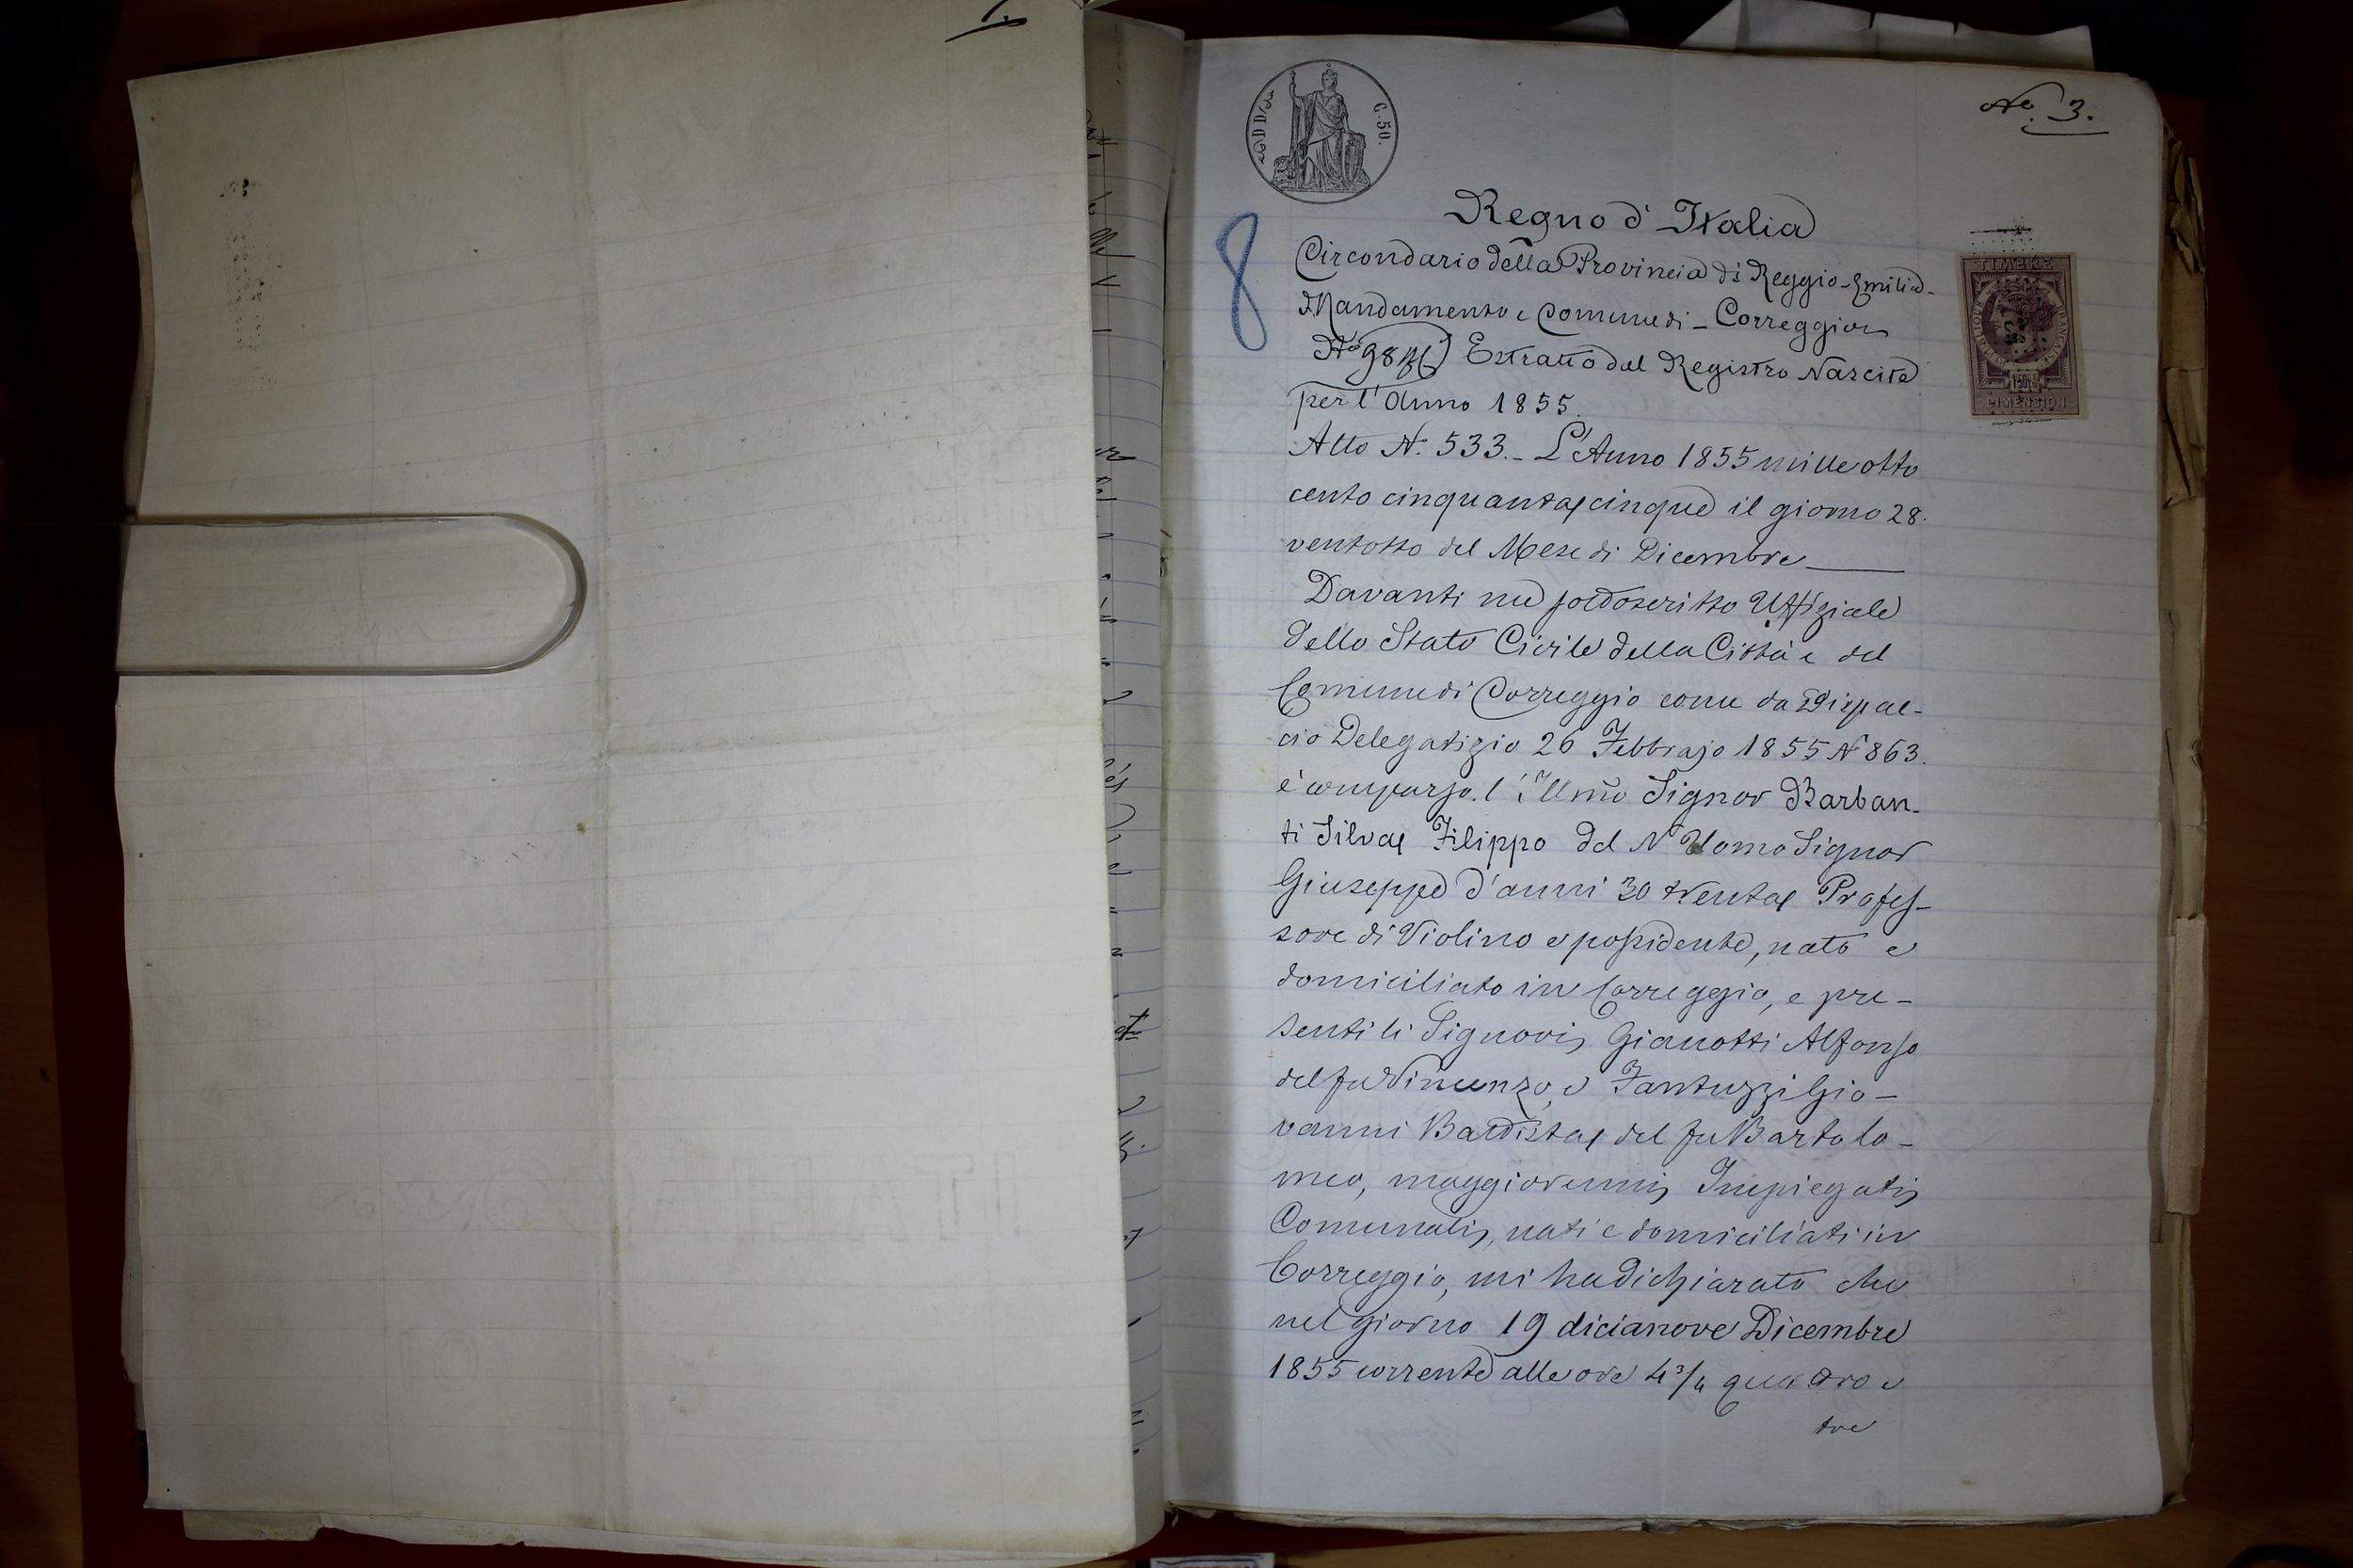 No. 3.
C. 50.
8
Regno d'Italia
Circondario della Provincia di Reggio-Emilia-
Mandamento e Comune di - Correggio
TIMBRE
DIMENSION
Estratto dal Registro Nascite
per l'Anno 1855.
Atto N. 533. - L'Anno 1855 mille otto
cento cinquanta cinque il giorno 28.
ventotto del Mese di Dicembre
Davanti me sottoscritto Uffiziale
dello Stato Civile della Città e del
Comune di Correggio come da Dispac-
cio Delegatizio 26 Febbrajo 1855 N 863.
è comparso l'Illmo Signor Barban-
ti Silva Filippo del N Uomo Signor
Giuseppe d'anni 30 trenta Profes-
sore di Violino e possidente, nato e
domiciliato in Correggio, e pre-
senti li Signori Gianotti Alfonso
del fu Vincenzo, e Fantuzzi Gio-
vanni Battista del fu Bartolo-
meo, maggiorenni Impiegati
Comunali, nati e domiciliati in
Correggio, mi ha dichiarato che
nel giorno 19 dicianove Dicembre
1855 corrente alle ore 4 3/4 quattro e
tre